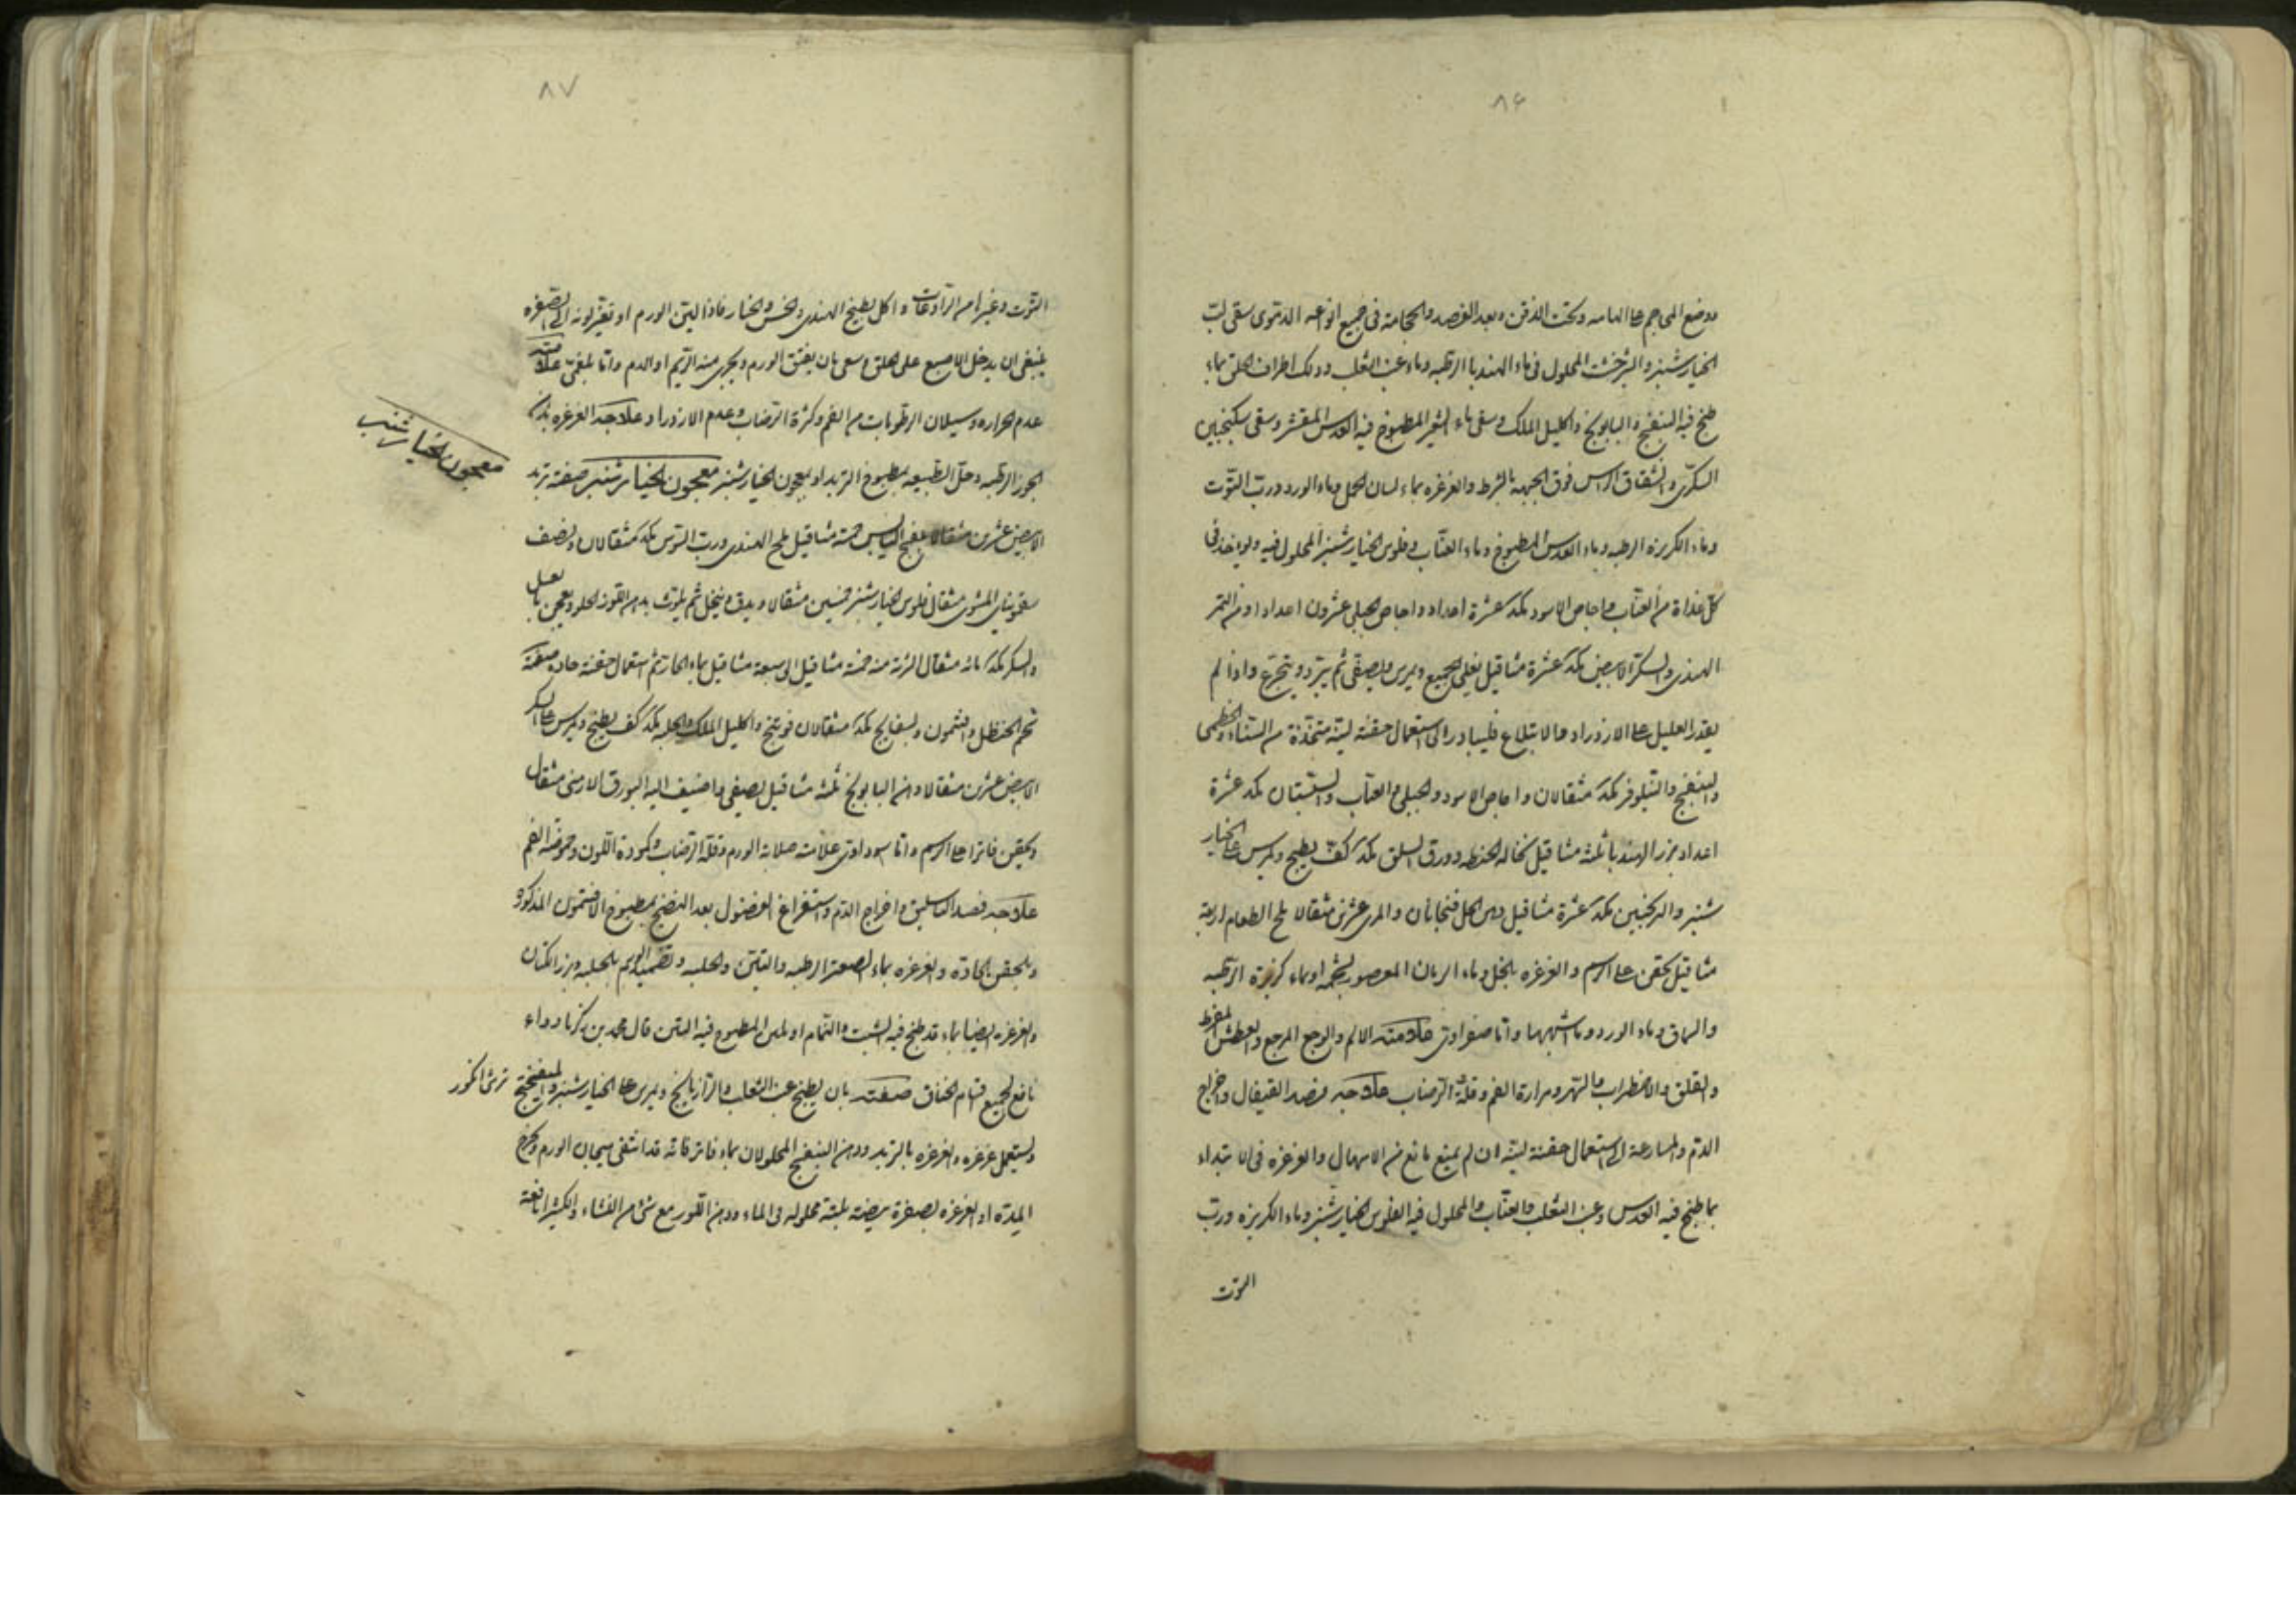 ۸۶
ووضع المحاجم على الهامه وتحت الذقن وبعد الفصد والحجامة فى جميع انواعه الدموى سقى لب
الخيار شنبر والشيرخشت المحلول فى ماء الهندبا الرطبه وماء عنب الثعلب ودلك اطراف الحلق بماء
طبخ فيه البنفسج والبابونج واكليل الملك وسقى ماء الشعير المطبوخ فيه العدس المقشر وسقى سكنجبين
السكرى فوق الجبهه بالشرط والغرغره بماء لسان الحمل وماء الورد ورب التوت
وماء الكزبرة الرطبه وماء العدس المطبوخ وماء العناب وفلوس الخيار شنبر المحلول فيه ويواخذ فى
كل غداة من العناب واجاص الاسود مكد عشرة اعداد واجاص الجبلى عشرون اعدادا ومن التمر
الهندى والسكر الابيض مكد عشرة مثاقيل يغلى الجميع ويمرس ويصفى ثم يبرد ويتجرع واذا لم
يقدر العليل على الازدراد والابتلاع فليبادر الى استعمال حقنه لينه متخذة من السناء والخطمى
والبنفسج والنيلوفر مكد مثقالان واجاص الاسود والجبلى والعناب والسبستان مكد عشرة
اعداد بزر الهندبا ثلثه مثاقيل نخاله الحنطه وورق السلق مكد كف يطبخ ويمرس على الخيار
شنبر والترنجبين مكد عشرة مثاقيل دهن الحل فنجانان والمرى عشرين مثقالا ملح الطعام اربعة
مثاقيل يحقن على الرسم والغرغره بالخل وماء الرمان المعصور بشحمه اوماء كزبرة الرطبه
والسماق وماء الورد وما اشبهها واما صفراوى علامته الالم والوجع والعطش المفرط
والقلق والاضطراب والسهر ومرارة الفم وقلة الرضاب علاجه فصد القيفال واخراج
الدم والمسارعة الى استعمال حقنة لينه ان لم يمنع مانع من الاسهال والغرغره فى الابتداء
بما طبخ فيه العدس وعنب الثعلب والعناب والمحلول فيه الفلوس الخيار شنبر وماء الكزبره ورب
التوت
۸۷
التوت وغيرها من الرادعات واكل بطيخ الهندى والخس والخيار فاذا لين الورم او تغير لونه الى الصفره
ينبغى ان يدخل الاصبع على الحلق وسعى بان يفتق الورم ويجرى منه الريم او الدم واما بلغمى علامته
عدم الحراره وسيلان الرطوبات من الفم وكثرة الرضاب وعدم الازدراد علاجه الغرغره برب
الجوز الرطبه وحل الطبيعه بمطبوخ التربد او بمعجون الخيار شنبر معجون الخيار شنبر صفته تربد
الابيض عشرين مثقالا بنفسج اليابس خمسه مثاقيل ملح الهندى ورب السوس مكد مثقالان ونصف
سقمونياى المشوى مثقال فلوس الخيار شنبر خمسين مثقالا ويدق وينخل ثم يلوث بدهن اللوز الحلو ويعجن بالعسل
والسكر مكد مائه مثقال الشربه منه خمسة مثاقيل الى سبعة مثاقيل بماء الحار ثم استعمال حقنة حاده صفته
شحم الحنظل وافتيمون وبسفايج مكد مثقالان فوتنج واكليل الملك والحلبه مكد كف يطبخ ويمرس على السكر
الابيض عشرين مثقالا دهن البابونج ثلثه مثاقيل يصفى واضيف اليه البورق الارمنى مثقال
ويحقن فاترا على الرسم واما سوداوى علامته صلابة الورم وقلة الرضاب وكمودة اللون وحموضة الفم
علاجه فصد الباسليق واخراج الدم واستفراغ الفضول بعد النضج بمطبوخ الافتيمون المذكور
والحقن الحادة والغرغره بماء الصعتر الرطبه والتين والحلبه وتضميد الورم بالحلبه وبزر الكتان
والغرغره ايضا بماء قد طبخ فيه الشبت والنمام او لبن المطبوخ فيه التين قال محمد بن زكريا دواء
نافع لجميع اقسام الخناق صفته بان يطبخ عنب الثعلب والرازيانج ويمرس على الخيار شنبر والميفختج
ويستعمل غرغره والغرغره بالتربد ودهن البنفسج المحلولان بماء فاتر فانه
المدة او الغرغره بصفرة بيضه محلوله فى الماء ودهن اللوز مع شىء من النشاء والكثيرا نافعة
معجون الخيار شنبر